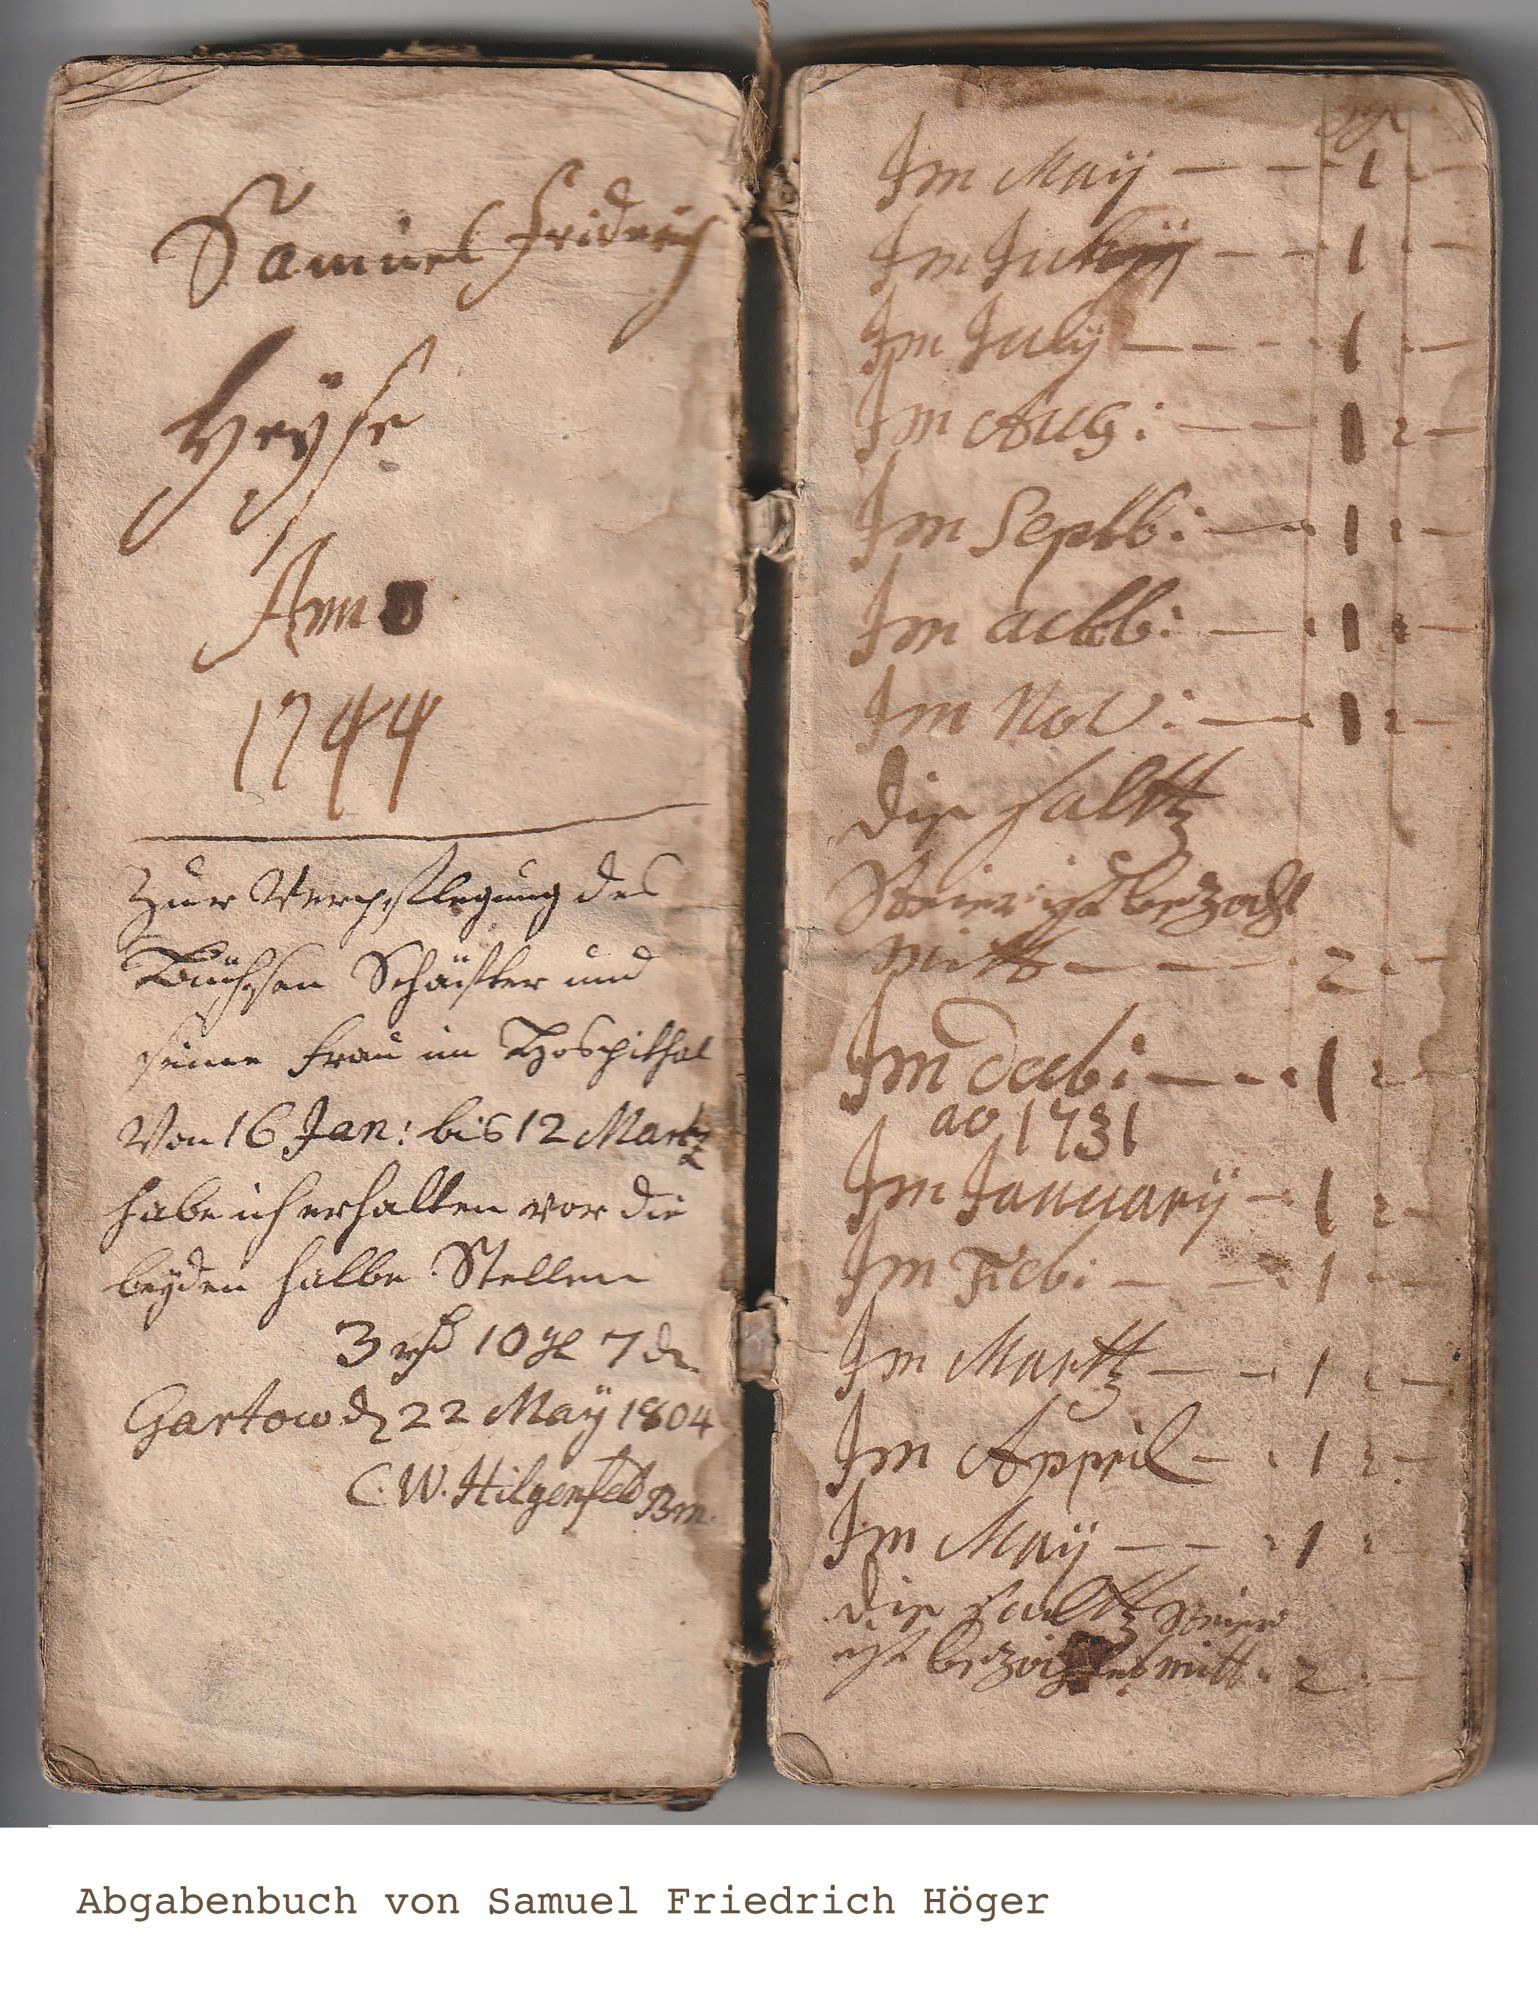 Samuel Fridrich
Heÿse
Anno
1744
Zur Verpflegung des
Büchsen Schäffter und
seine Frau im Hospithal
Von 16 Jan: bis 12 Martz
habe ich erhalten vor die
beÿden halbe Stellen
3 rth 10 gl 7 d
Gartow d 22 Maÿ 1804
C. W. Hilgenfeld Bm.
Im Maÿ — — 1 — 
Im — — 1 — 
Im Julÿ — — — 1 —
Im Aug: — — 1 2 —
Im Septb: — 1 2 —
Im octbb: — 1 2 —
Im Nov: — 1 2 —
die haltz
Steier ist bezahl
mitt — — 2 —
Im decb: — — 1 2 —
ao 1731
Im Januarÿ — 1 2 —
Im Feb: — — 1 —
Im Martz — — 1 2 —
Im Appril — 1 2 —
Im Maÿ — — 1 2 —
die haltz Steier
ist mitt 2 —
Abgabenbuch von Samuel Friedrich Höger